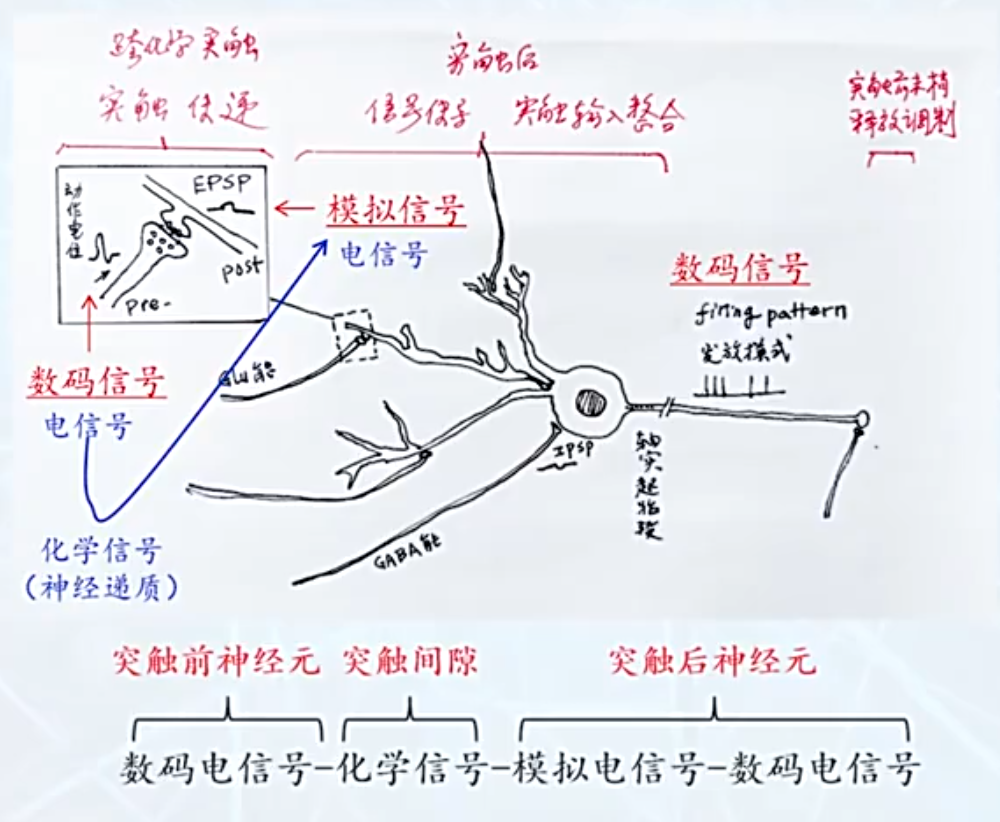 跨化学突触
突触传递
突触后
信号传导 突触输入整合
突触前末梢
释放调制
动作电位
EPSP
post
pre-
模拟信号
电信号
数码信号
firing pattern
发放模式
数码信号
电信号
Glu能
IPSP
轴突起始段
GABA能
化学信号
(神经递质)
突触前神经元 突触间隙 突触后神经元
数码电信号-化学信号-模拟电信号-数码电信号